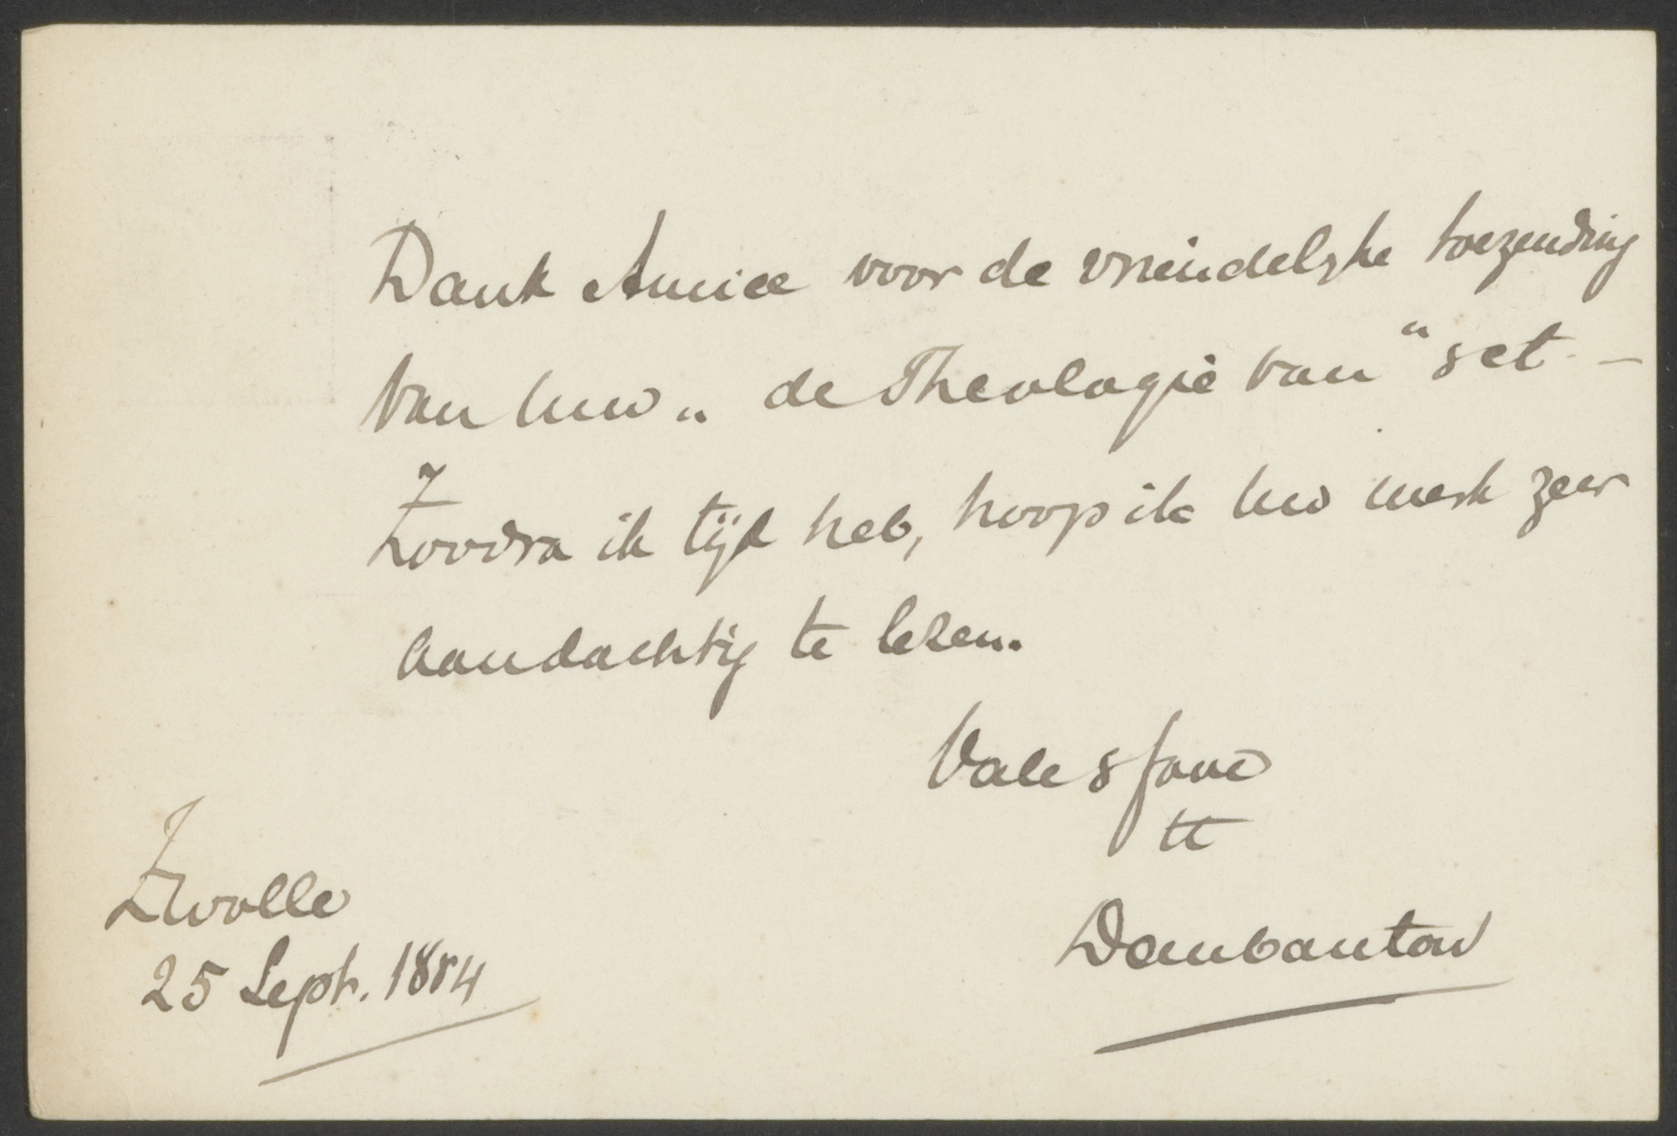 Dank Amice voor de vriendelyke toezending
van Uw „ de Theologie van “ set -
Zoodra ik tijd heb, hoop ik Uw werk zeer
aandachtig te lezen.
Vale & fave
tt
Daubanton
Zwolle
25 Sept. 1884